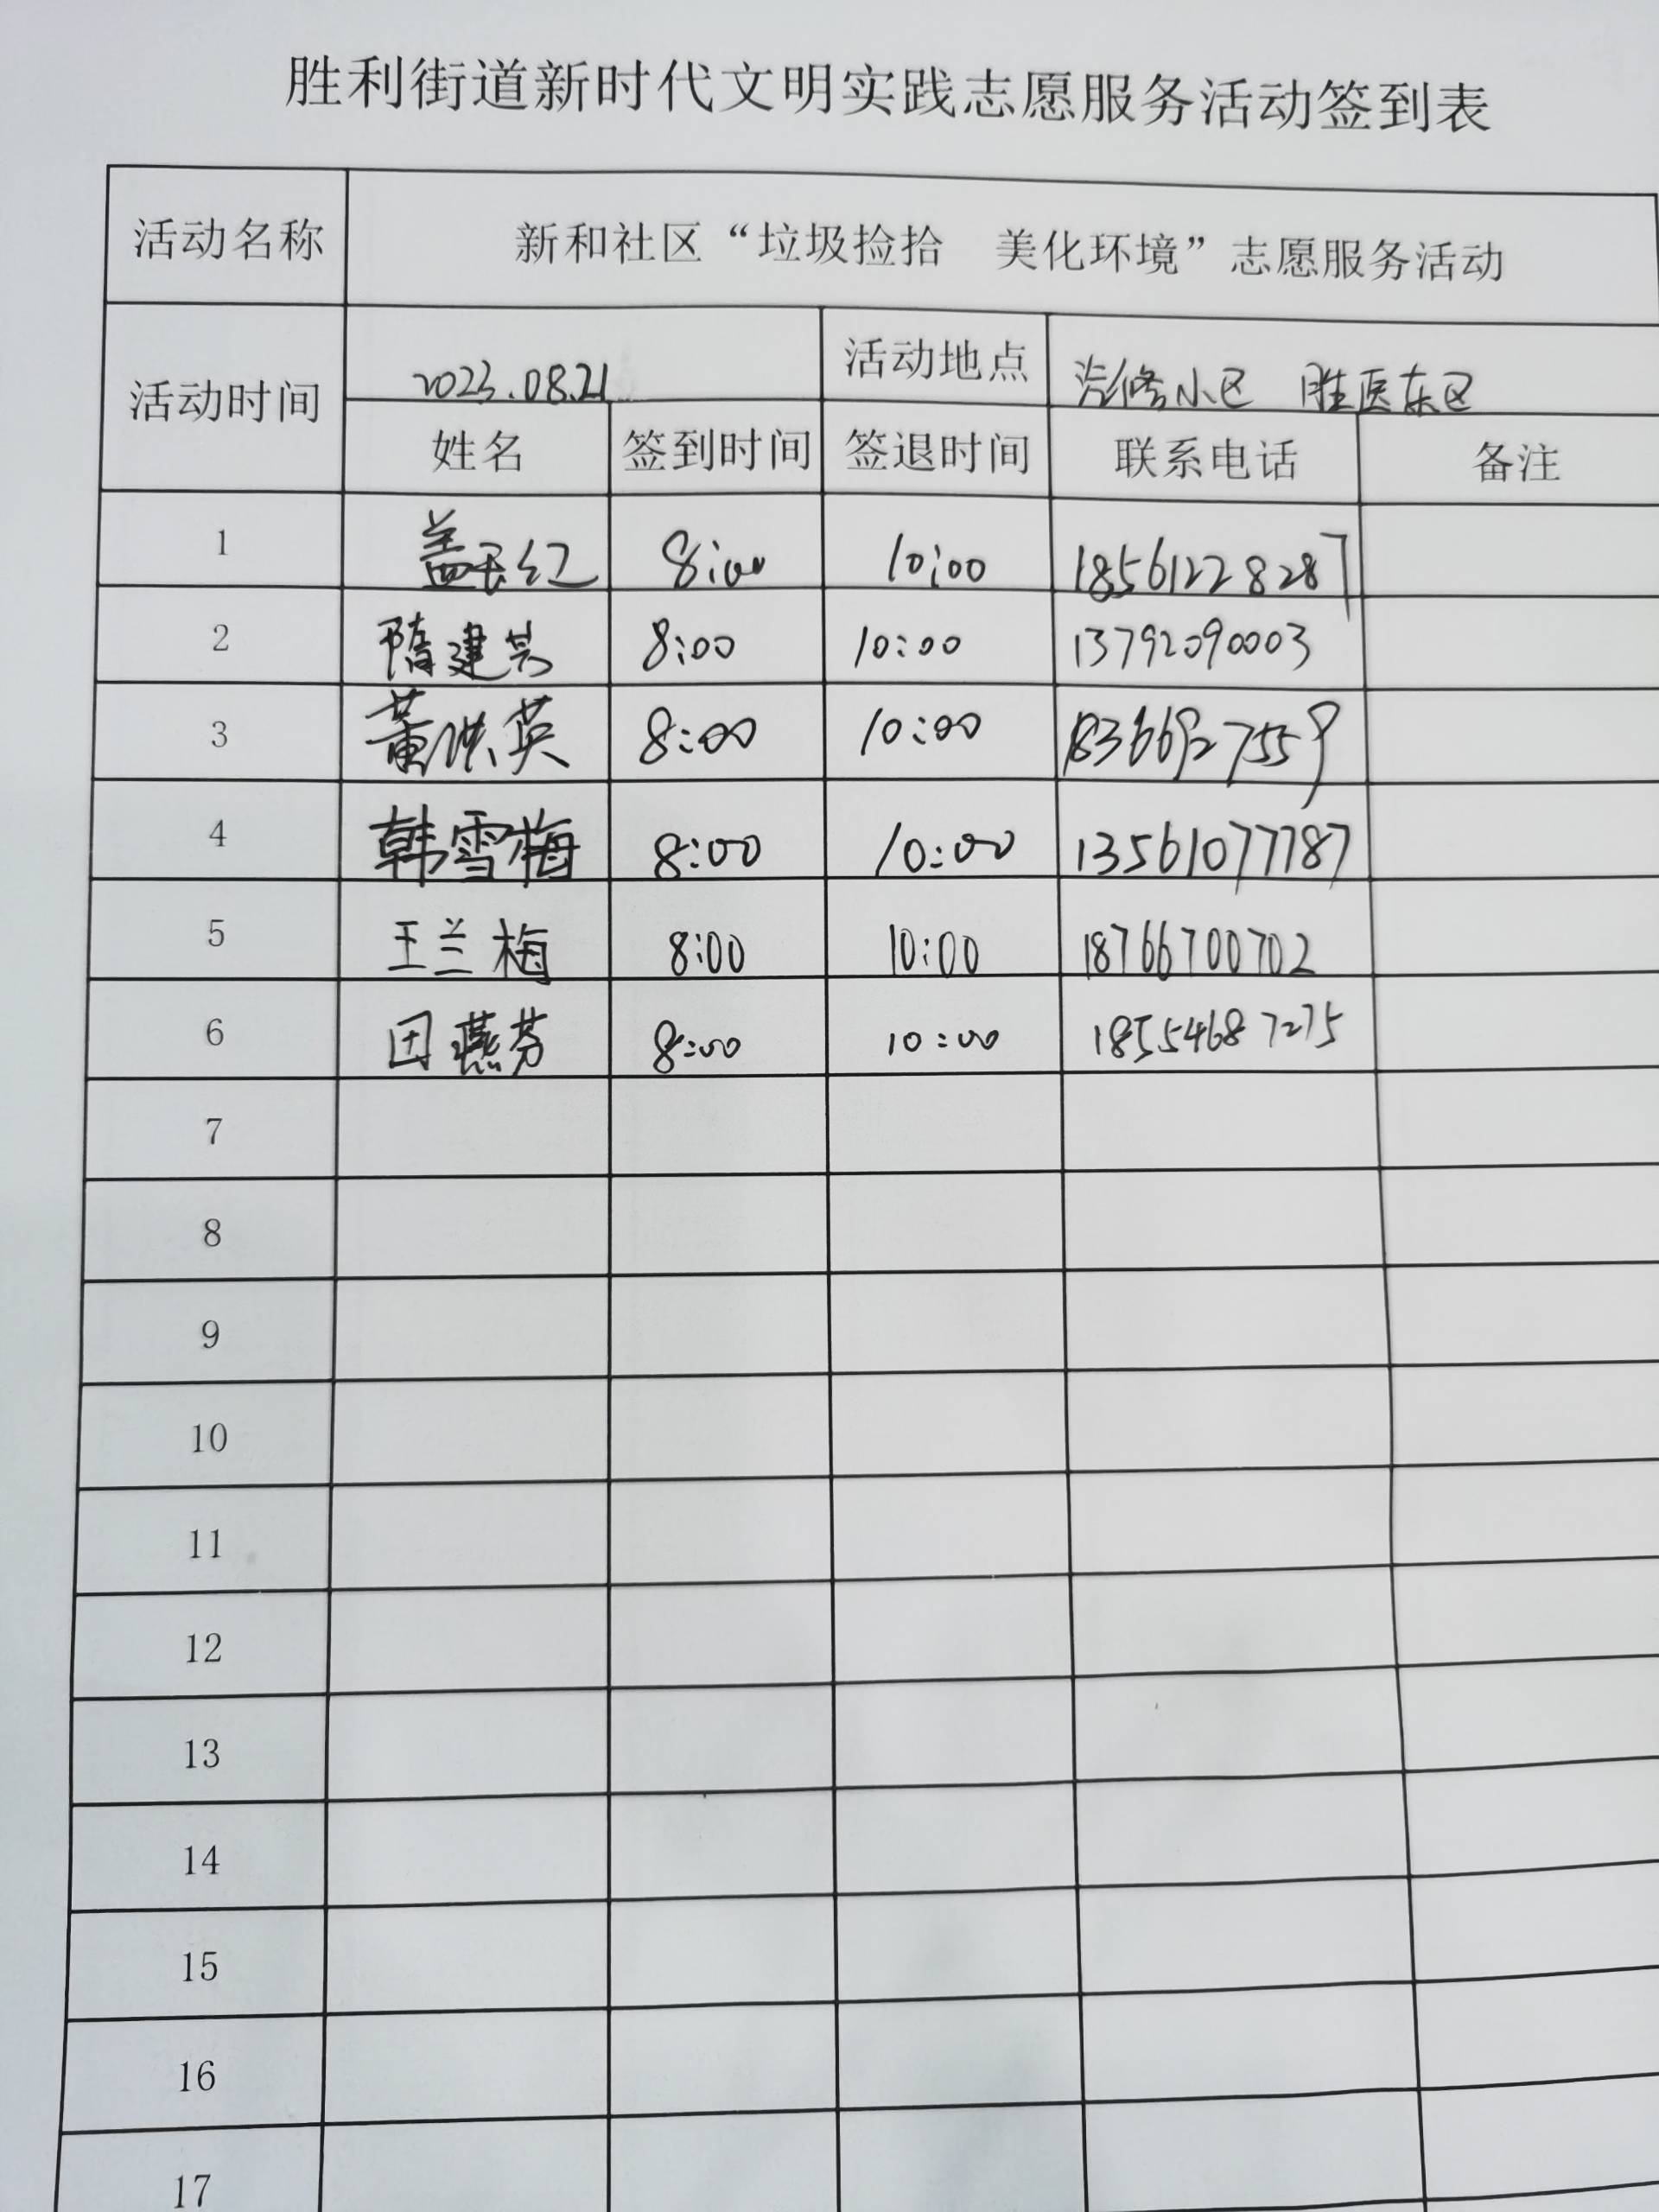 胜利街道新时代文明实践志愿服务活动签到表
活动名称 新和社区“垃圾捡拾 美化环境”志愿服务活动
活动时间 2023.08.21 活动地点 汽修小区 胜医东区
姓名 签到时间 签退时间 联系电话 备注
1 盖玉红 8:00 10:00 18561228287
2 隋建芸 8:00 10:00 13792090003
3 董洪英 8:00 10:00 18366927559
4 韩雪梅 8:00 10:00 13561077787
5 王兰梅 8:00 10:00 18766700702
6 田燕芬 8:00 10:00 18554687275
7
8
9
10
11
12
13
14
15
16
17